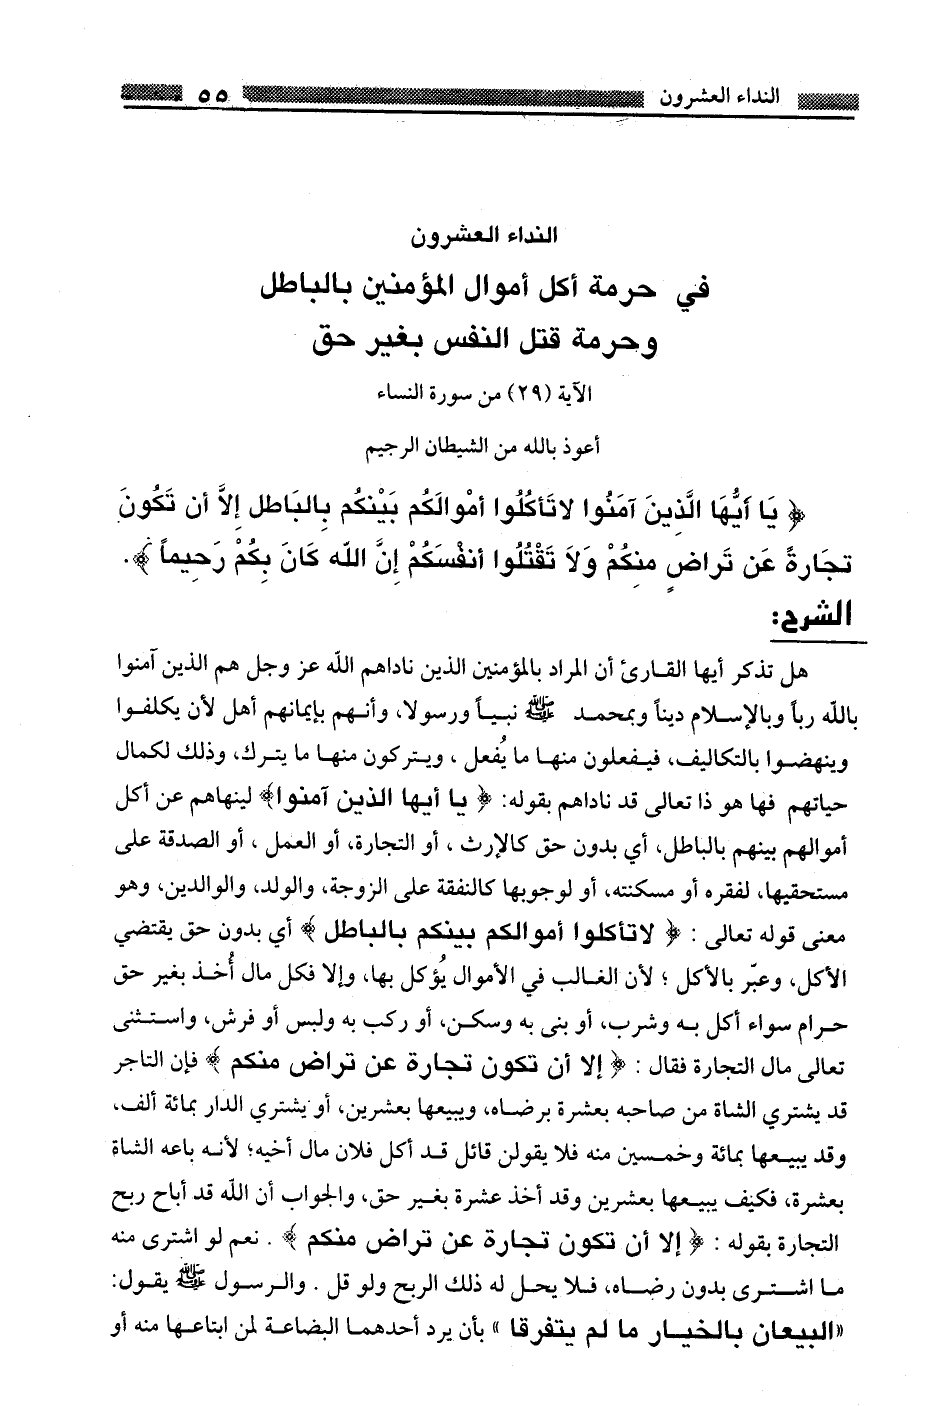 النداء العشرون ٥٥
النداء العشرون
في حرمة أكل أموال المؤمنين بالباطل
وحرمة قتل النفس بغير حق
الآية (٢٩) من سورة النساء
أعوذ بالله من الشيطان الرجيم
﴿ يَا أَيُّهَا الَّذِينَ آمَنُوا لاتَأكُلُوا أمْوالَكُم بَيْنَكُم بِالبَاطلِ إلاَّ أن تَكُونَ
تجَارةً عَن تَراضٍ منكُمْ وَلاَ تَقْتُلُوا أنفْسَكُمْ إنَّ الله كَانَ بِكُمْ رَحيماً ﴾.
الشرح:
هل تذكر أيها القارئ أن المراد بالمؤمنين الذين ناداهم الله عز وجل هم الذين آمنوا
بالله رباً وبالإسلام ديناً وبمحمد ﷺ نبياً ورسولا، وأنهم بإيمانهم أهل لأن يكلفوا
وينهضوا بالتكاليف، فيفعلون منها ما يُفعل ، ويتركون منها ما يترك، وذلك لكمال
حياتهم فها هو ذا تعالى قد ناداهم بقوله: ﴿ يا أيها الذين آمنوا﴾ لينهاهم عن أكل
أموالهم بينهم بالباطل، أي بدون حق كالإرث ، أو التجارة، أو العمل ، أو الصدقة على
مستحقيها، لفقره أو مسكنته، أو لوجوبها كالنفقة على الزوجة، والولد، والوالدين، وهو
معنى قوله تعالى : ﴿ لاتأكلوا أموالكم بينكم بالباطل ﴾ أي بدون حق يقتضي
الأكل، وعبّر بالأكل ؛ لأن الغالب في الأموال يُؤكل بها، وإلا فكل مال أُخذ بغير حق
حرام سواء أكل به وشرب، أو بنى به وسكن، أو ركب به ولبس أو فرش، واستثنى
تعالى مال التجارة فقال : ﴿ إلا أن تكون تجارة عن تراض منكم ﴾ فإن التاجر
قد يشتري الشاة من صاحبه بعشرة برضاه، ويبيعها بعشرين، أو يشتري الدار بمائة ألف،
وقد يبيعها بمائة وخمسين منه فلا يقولن قائل قد أكل فلان مال أخيه؛ لأنه باعه الشاة
بعشرة، فكيف يبيعها بعشرين وقد أخذ عشرة بغير حق، والجواب أن الله قد أباح ربح
التجارة بقوله : ﴿ إلا أن تكون تجارة عن تراض منكم ﴾ . نعم لو اشترى منه
ما اشترى بدون رضاه، فلا يحل له ذلك الربح ولو قل . والرسول ﷺ يقول:
«البيعان بالخيار ما لم يتفرقا » بأن يرد أحدهما البضاعة لمن ابتاعها منه أو